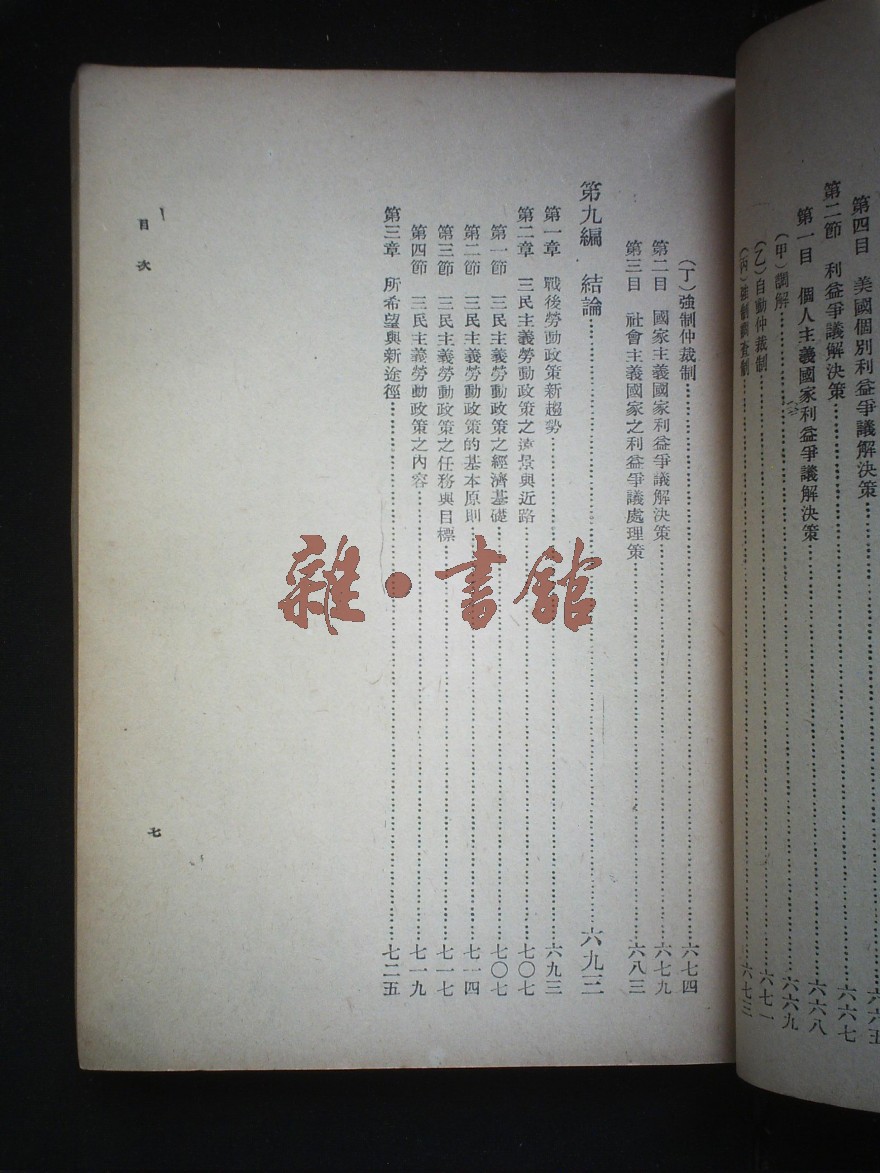 第四目　美國個別利益爭議解決策……六六五
第二節　利益爭議解決策……六六七
第一目　個人主義國家利益爭議解決策……六六八
（甲）調解……六六九
（乙）自動仲裁制……六七一
（丙）強制調查制……六七三
（丁）強制仲裁制……六七四
第二目　國家主義國家利益爭議解決策……六七九
第三目　社會主義國家之利益爭議處理策……六八三
第九編　結論……六九三
第一章　戰後勞動政策新趨勢……六九三
第二章　三民主義勞動政策之遠景與近路……七〇七
第一節　三民主義勞動政策之經濟基礎……七〇七
第二節　三民主義勞動政策的基本原則……七一四
第三節　三民主義勞動政策之任務與目標……七一七
第四節　三民主義勞動政策之內容……七一九
第三章　所希望與新途徑……七二五
目次
七
雜·書館